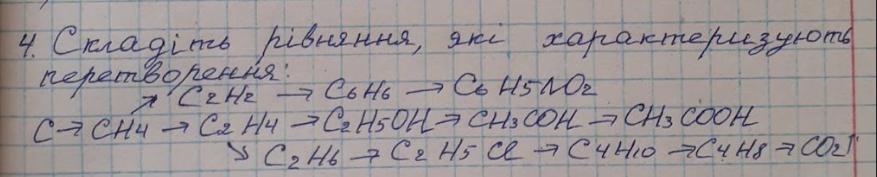 4. Складіть рівняння, які характеризують
перетворення:
↗ C2H2 → C6H6 → C6H5NO2
C → CH4 → C2H4 → C2H5OH → CH3COH → CH3COOH
↘ C2H6 → C2H5Cl → C4H10 → C4H8 → CO2↑